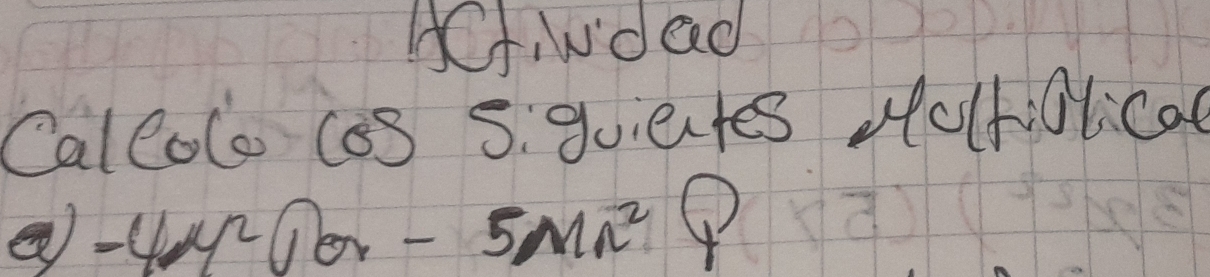 Actividad
Calcolo los Siguientes Moltiplicac
a) -4m² Por - 5mn² P